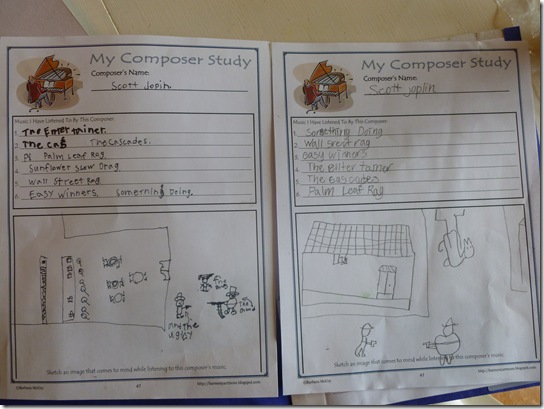 My Composer Study
Composer's Name:
Scott Jopin
Music I Have Listened To By This Composer
1. The Entertainer.
2. The Cas The Cascades.
3. Ps Palm Leaf Rag
4. Sunflower slow Drag
5. Wall Street Rag
6. Easy Winners. Someming Doing.
The Bad
The Good
and the ugly
Sketch an image that comes to mind while listening to this composer's music.
©Barbara McCoy
47
http://harmonyartmom.blogspot.com
My Composer Study
Composer's Name:
Scott joplin
Music I Have Listened To By This Composer
1. Something Doing
2. Wall sreet rag
3. easy winners
4. The Enter tainer
5. The Cascades
6. Palm Leaf Rag
Sketch an image that comes to mind while listening to this composer's music.
©Barbara McCoy
47
http://harmonyartmom.blogspot.com